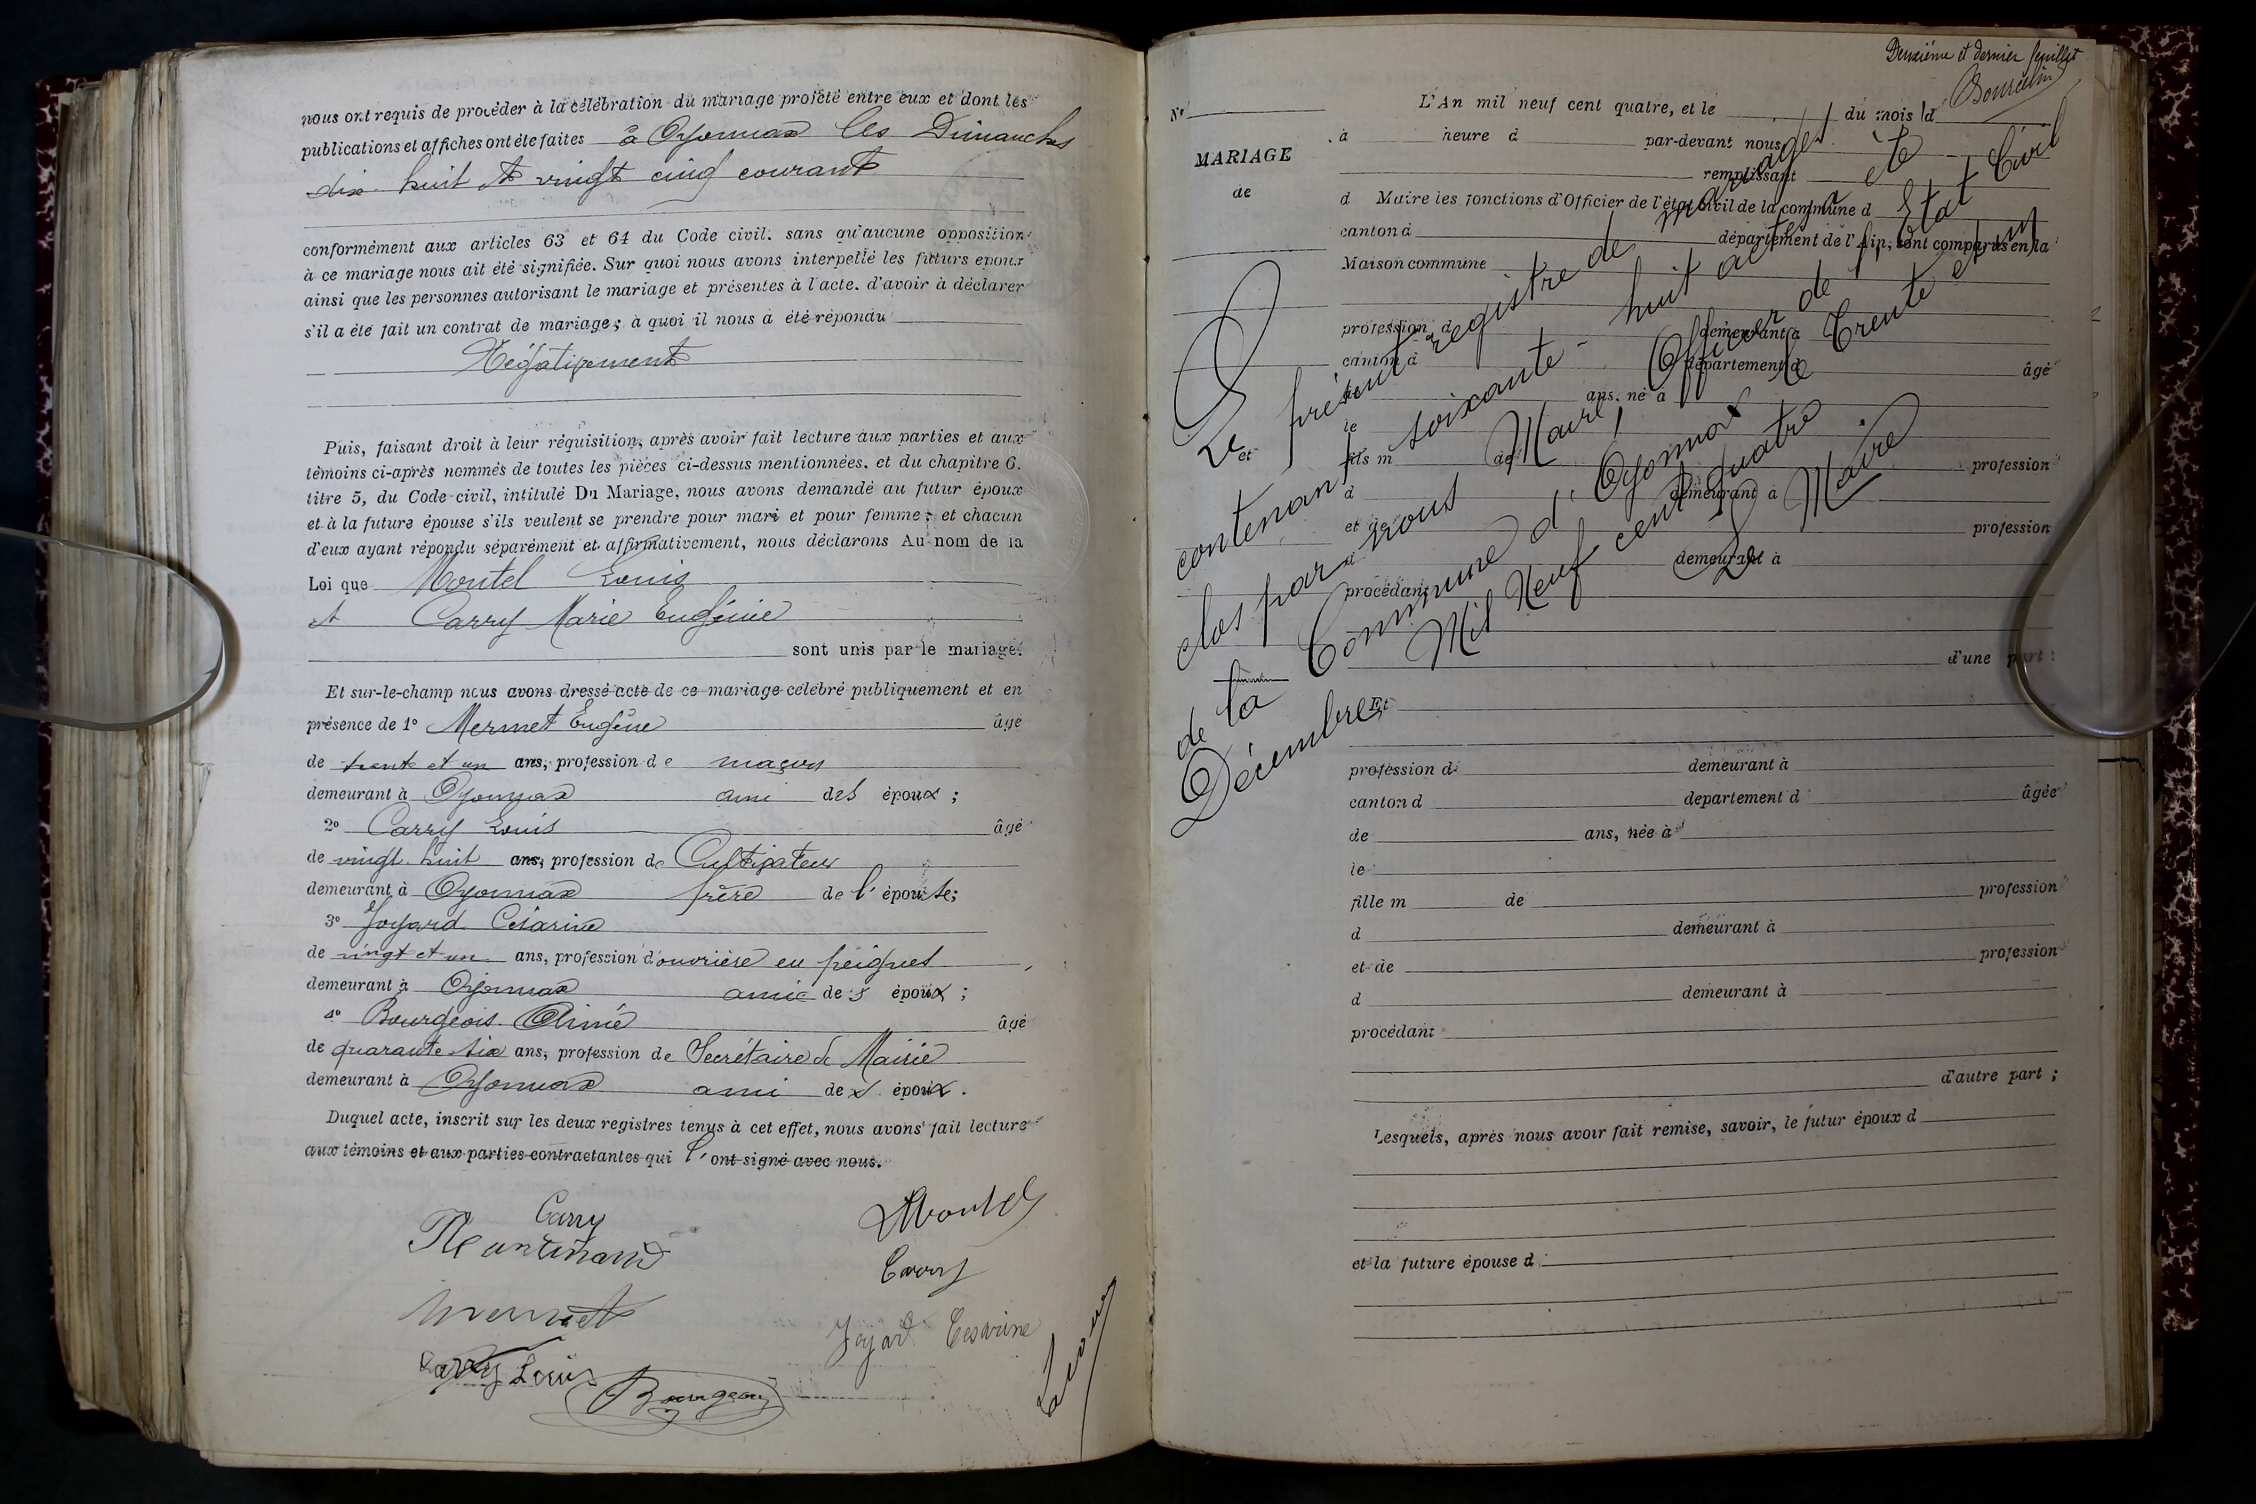 nous ont requis de procéder à la célébration du mariage projeté entre eux et dont les
publications et affiches ont été faites à Oyonnax les Dimanches
dix-huit et vingt cinq courant
conformément aux articles 63 et 64 du Code civil. sans qu'aucune opposition
à ce mariage nous ait été signifiée. Sur quoi nous avons interpellé les futurs époux
ainsi que les personnes autorisant le mariage et présentes à l'acte. d'avoir à déclarer
s'il a été fait un contrat de mariage; à quoi il nous a été répondu
Négativement
Puis, faisant droit à leur réquisition, après avoir fait lecture aux parties et aux
témoins ci-après nommés de toutes les pièces ci-dessus mentionnées. et du chapitre 6.
titre 5, du Code civil, intitulé Du Mariage, nous avons demandé au futur époux
et à la future épouse s'ils veulent se prendre pour mari et pour femme; et chacun
d'eux ayant répondu séparément et affirmativement, nous déclarons Au nom de la
Loi que Montel Louis
et Carry Marie Eugénie
sont unis par le mariage.
Et sur-le-champ nous avons dressé acte de ce mariage célébré publiquement et en
présence de 1° Mermet Eugène âgé
de trente et un ans, profession de maçon
demeurant à Oyonnax ami des époux;
2° Carry Louis âgé
de vingt-huit ans, profession de Cultivateur
demeurant à Oyonnax frère de l'épouse;
3° Joyard Césarine
de vingt et un ans, profession d'ouvrière en peignes
demeurant à Oyonnax amie des époux;
4° Bourgeois Aimé âgé
de quarante six ans, profession de Secrétaire de Mairie
demeurant à Oyonnax ami des époux.
Duquel acte, inscrit sur les deux registres tenus à cet effet, nous avons fait lecture
aux témoins et aux parties contractantes qui l'ont signé avec nous.
Carry
LMontel
Carry
Mermet
Joyard Cesarine
Carry Louis
Bourgeois
Deuxième et dernier feuillet
N°
MARIAGE
de
et
L'An mil neuf cent quatre, et le du mois d
à heure à par-devant nous
remplissant
d Maire les fonctions d'Officier de l'état civil de la commune d
canton d département de l'Ain, sont comparus en la
Maison commune
profession d demeurant à
canton d département d âgé
de ans, né à
le
fils m de profession
d demeurant à
et de profession
d demeurant à
procédant
d'une part:
Et
profession d demeurant à
canton d département d âgée
de ans, née à
le
fille m de profession
d demeurant à
et de profession
d demeurant à
procédant
d'autre part;
Lesquels, après nous avoir fait remise, savoir, le futur époux d
et la future épouse d
Le présent registre de mariages
contenant soixante-huit actes a été
clos par nous Maire, Officier de l'Etat Civil
de la Commune d'Oyonnax le Trente et un
Décembre Mil Neuf cent quatre
Le Maire